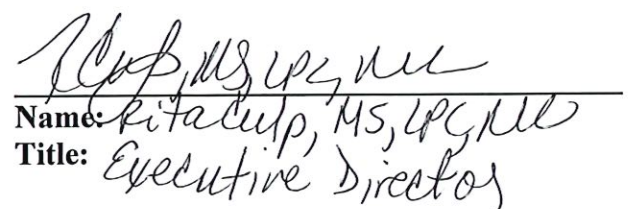 RCulp, MS, LPC, NCC
Name: Rita Culp, MS, LPC, NCC
Title: Executive Director